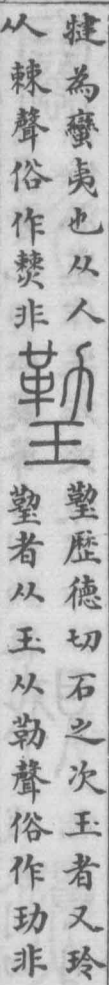 犍為蠻夷也从人
从棘聲俗作僰非
𤨙
𤨙歷德切石之次玉者又玲
𤨙者从玉从勒聲俗作玏非